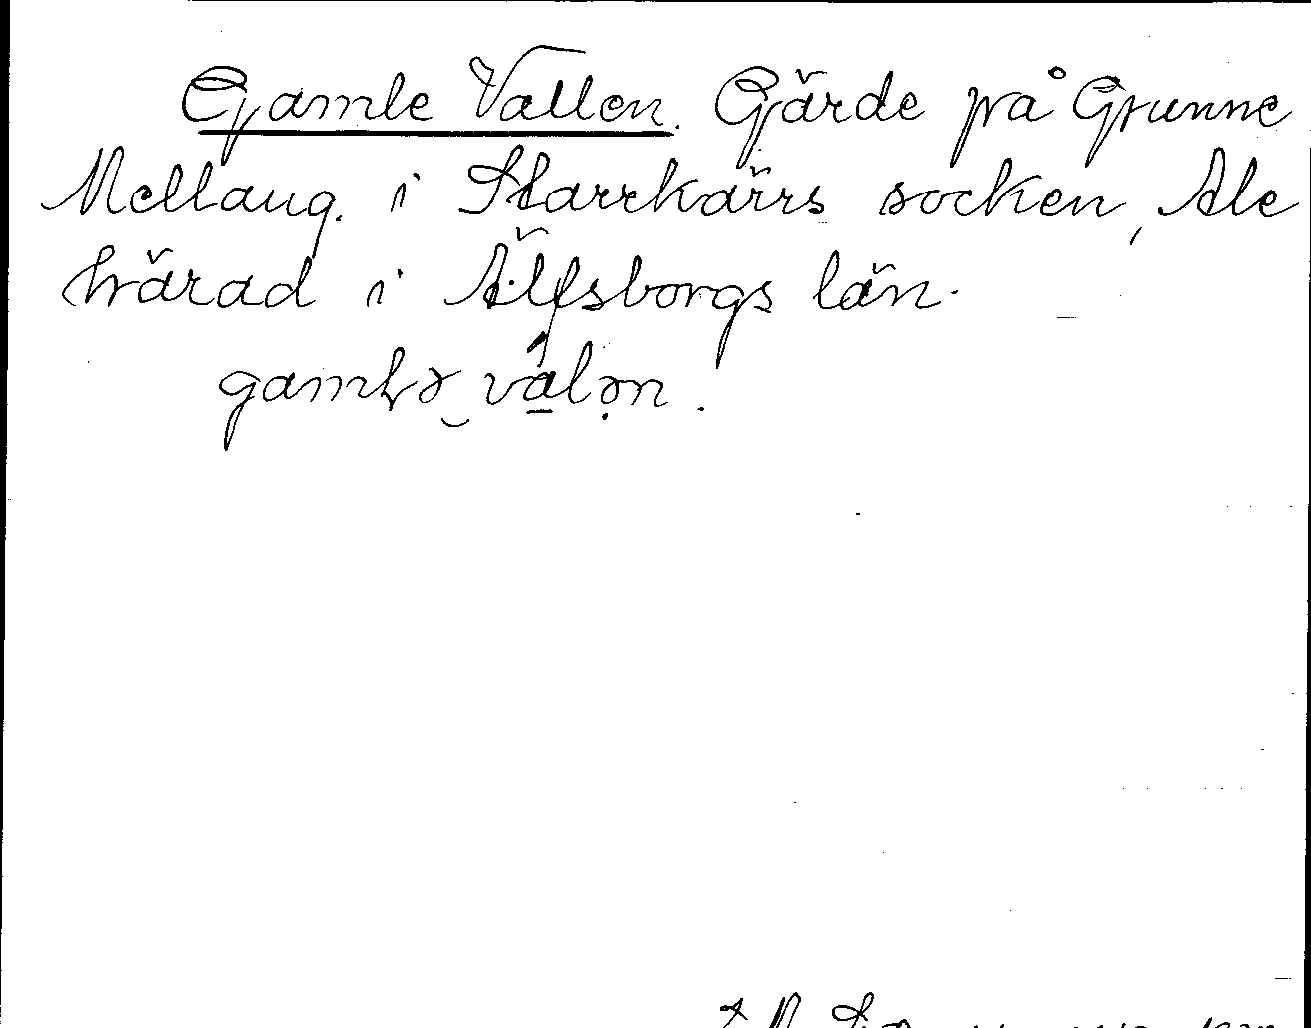 Gamle Vallen. Gärde på Grunne
Mellang. i Starrkärrs socken, Ale
härad i Älfsborgs län.
gamlə válən.